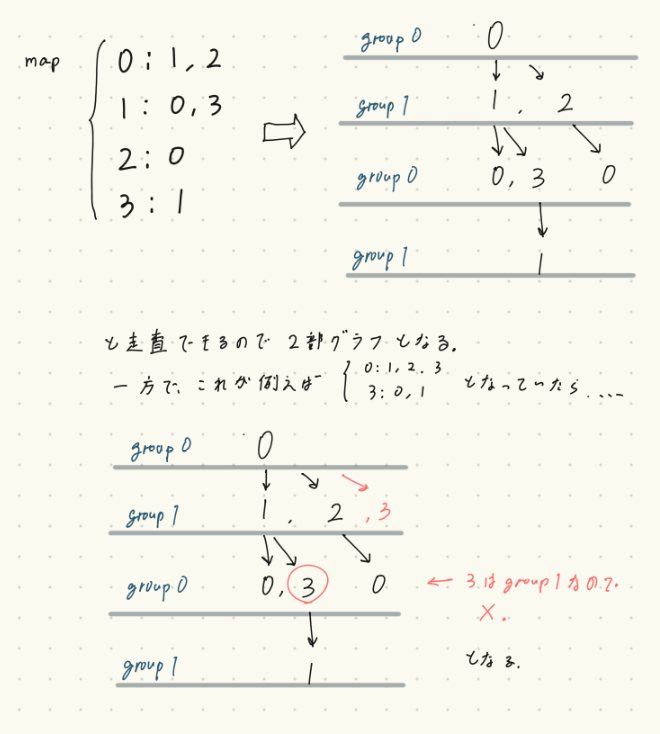 map
0: 1, 2
1: 0, 3
2: 0
3: 1
group 0 0
group 1 1. 2
group 0 0, 3 0
group 1 1
と走査できるので 2部グラフとなる.
一方で、これが例えば 0: 1, 2. 3
3: 0, 1 となっていたら.....
group 0 0
group 1 1. 2, 3
group 0 0, 3 0
← 3はgroup 1なので.
×.
group 1 1
となる.